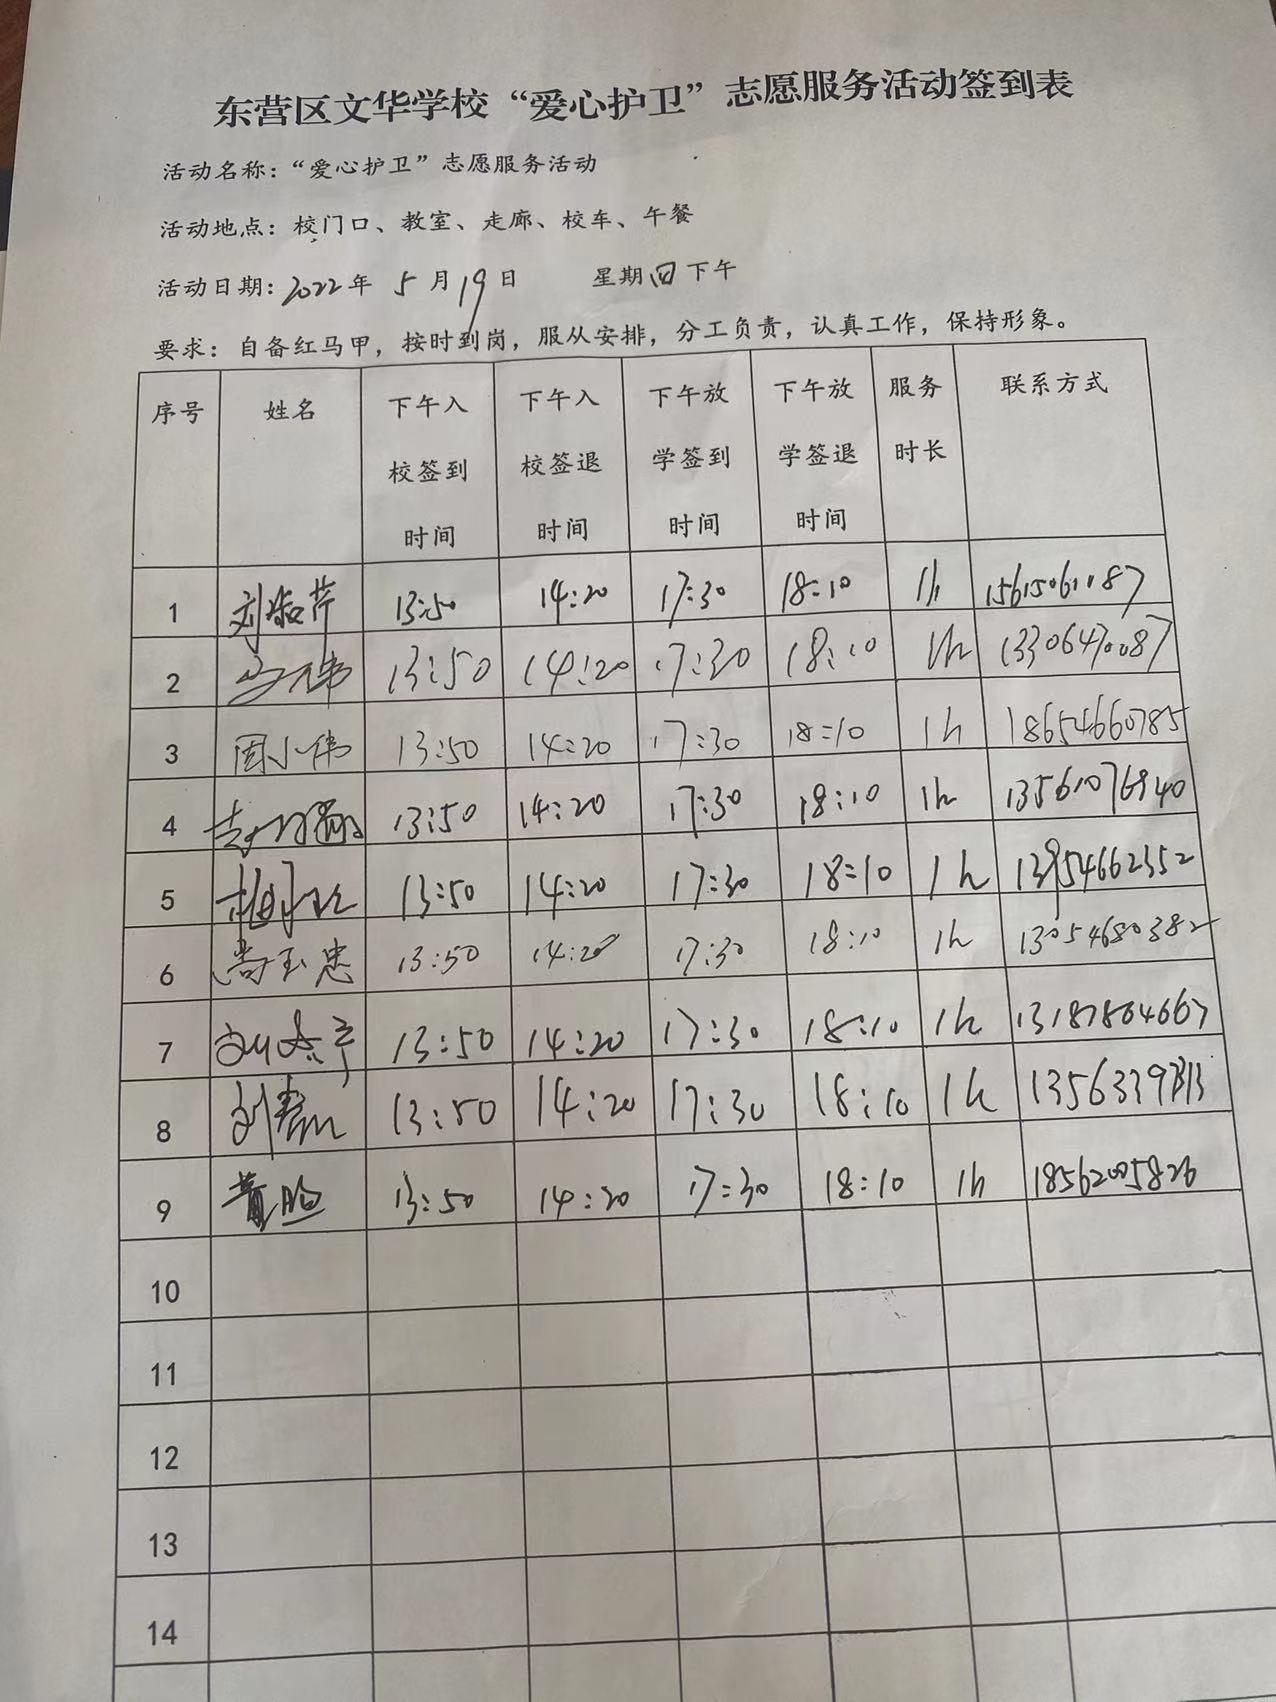 东营区文华学校“爱心护卫”志愿服务活动签到表
活动名称：“爱心护卫”志愿服务活动
活动地点：校门口、教室、走廊、校车、午餐
活动日期：2022年 5月19日 星期四下午
要求：自备红马甲，按时到岗，服从安排，分工负责，认真工作，保持形象。
序号 姓名 下午入校签到时间 下午入校签退时间 下午放学签到时间 下午放学签退时间 服务时长 联系方式
1 刘淑芹 13:50 14:20 17:30 18:10 1h 15615061087
2 13:50 14:20 17:30 18:10 1h 13306470087
3 周小伟 13:50 14:20 17:30 18:10 1h 18654660785
4 13:50 14:20 17:30 18:10 1h 13561076940
5 13:50 14:20 17:30 18:10 1h 13954662352
6 尚玉忠 13:50 14:20 17:30 18:10 1h 13054680382
7 13:50 14:20 17:30 18:10 1h 13187864667
8 13:50 14:20 17:30 18:10 1h
9 13:50 14:20 17:30 18:10 1h 18562005826
10
11
12
13
14